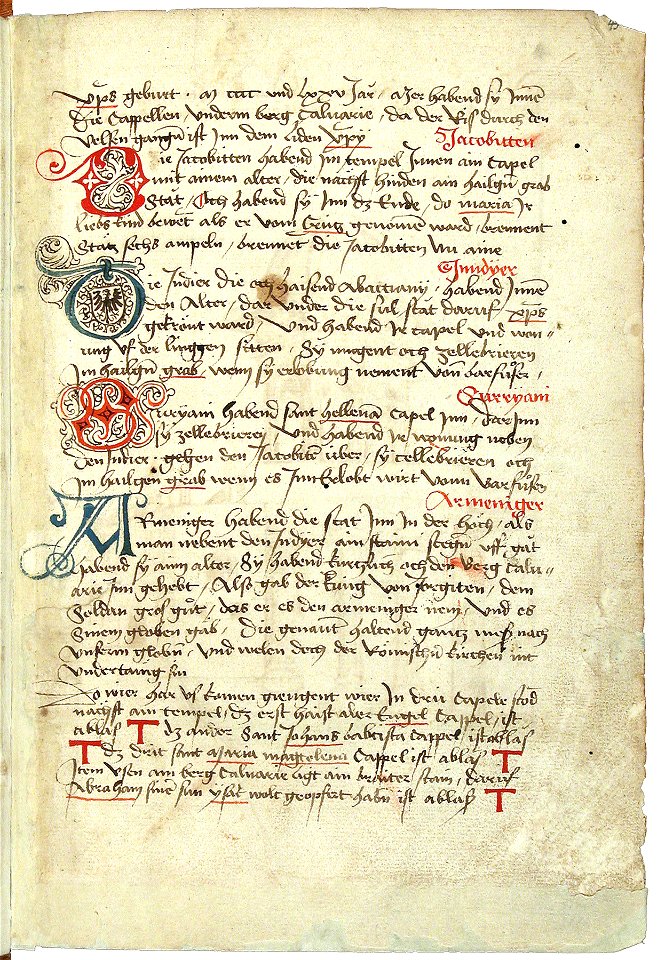 xp̄s geburt · M cccc und lxxv Jar, Mer habend sy Jnnē
Die Cappellen, underm berg Calvarie, da der Ris durch den
velsen gangn̄ ist Jnn dem liden xp̄y Jacobitten
Die Jacobitten habend Jm tempel Jnnen ain Capel
mit ainem alter, die nächst hinden am hailgn̄ grab
Stät, Och habend sy Jnn dz Ende, do maria Jr
liebs kind bewet als er vom Crütz genomen ward, brennent
Stätz sechs ampeln, brennet die Jacobitten nu aine
Jndyer
Die Jndier die och haisend Abattianÿ, habend Jnnē
den Alter, dar under die sul stät daruf, xp̄s
gekrönt ward, Und habend Jr capel und won-
ung uf der linggen sitten, Sÿ mugent och zellebrieren
Jm hailgn̄ grab, wenn sy erlobung nement von barfūser
Surryani
Surryani habend sant hellenā Capel Jnn, dar Jnn
sÿ zellebrieren, und habend Jr wonung neben
den Jndier, gehen den Jacobitē über, sÿ cellebrieren och
Jm hailgen grab wenn es Jnn erlobt wirt vonn barfusen
Armeniger
ARmeniger habend die stat Jnn Jn der höch, als
man nebent den Jndyer am staini stegn̄ uff gät
habend sy ainn alter, Sÿ habend kurtzlich och den Berg Calu-
arie Jnn gehebt, Also gab der küng von Jorgiten, dem
Soldan gros güt, das er es den armeniger nem, Und es
Sinem globen gab, Die genant haltend gantz meß nach
unserm globn̄, Und welen doch der Römischn̄ kirchen nit
undertänig sin
So wier har us kamen giengent wier Jn drii Capele stōd
nächst am tempel, dz erst haist aler Engel Cappel, ist
ablas T dz ander Sant Johans babtista Cappel, ist ablas
T dz drit sant Maria magtolena Cappel ist ablas T
Jtem usen am berg Calvarie ligt am brāiter stain, daruf
Abraham sinē sun ysac wolt geopfert habn̄ ist ablas T